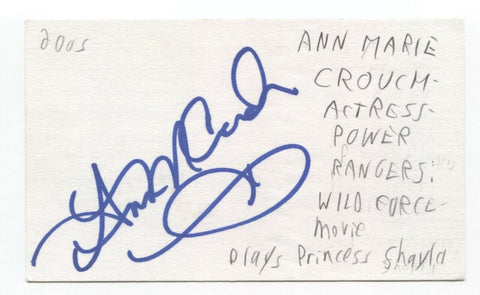 2002
ANN MARIE
CROUCH-
ACTRESS-
POWER
RANGERS:
WILD FORCE-
Movie
Plays Princess Shayla